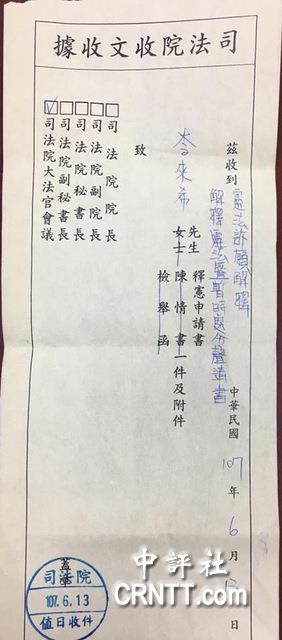 司法院收文收據
茲收到憲法訴願解釋
解釋憲法暨暫時處分聲請書
李來希 先生
女士
釋憲申請書
陳情書一件及附件
檢舉函
致
□司法院院長
□司法院副院長
□司法院秘書長
□司法院副秘書長
☑司法院大法官會議
中華民國107年6月13日
司法院
107.6.13
值日收件
中評社
CRNTT.com